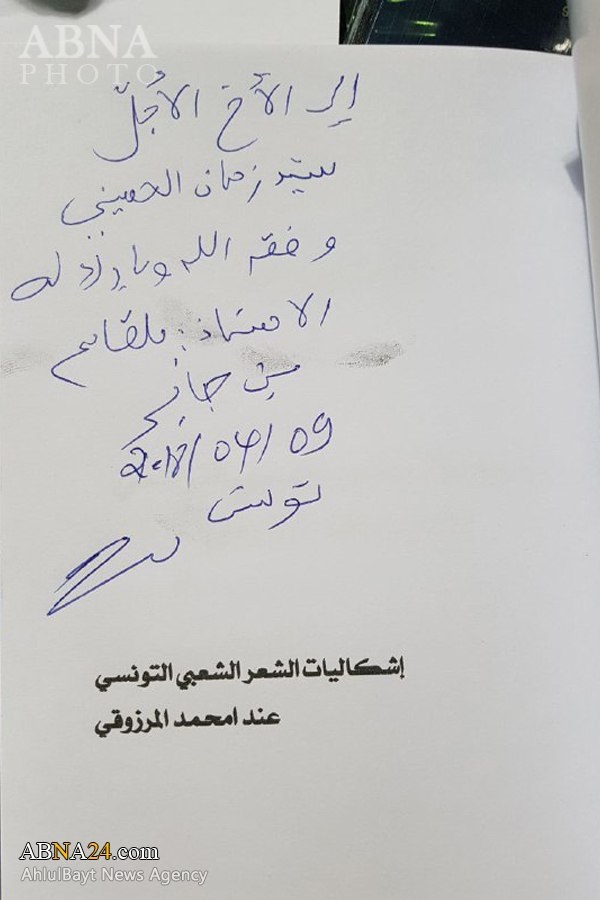 ABNA
PHOTO
إلى الأخ الأجلّ
سيد زمان الحسيني
وفقه الله و
الاستاذ: بلقاسم
بن جابر
2018/04/09
تونس
إشكاليات الشعر الشعبي التونسي
عند امحمد المرزوقي
ABNA24.com
AhlulBayt News Agency